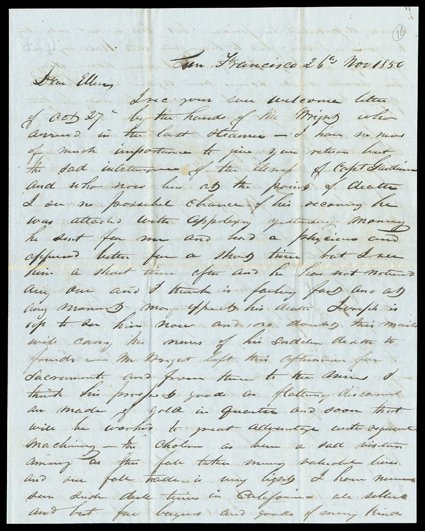 16
San Francisco 26th Nov 1850
Dear Ellery
I rec your ever welcome letter
of Oct 27th by the hand of Mr Wright who
arrived in the last steamer – I have no news
of much importance to give you return but
the sad intelligence of the illness of Capt Gardiner
and who now lies at the point of death
I see no possible chance of his recovery he
was attacked with Appoplexy yesterday morning
he sent for me and had a physician and
appeared better for a short time but I see
him a short time after and he has not noticed
any one and I think is failing fast and at
any moment may expect his death Joseph is
up to see him now and no doubt this mail
will carry the news of his sudden death to
friends – Mr Wright left this afternoon for
Sacramento and from there to the mines I
think his prospect good as flattering discoveries
are made of gold in quartz and soon that
will be worked to great advantage with
machinery – the cholera has been a sad visitor
among us this fall taken many valuable lives
and our fall trade is very light I have never
seen such dull times in California all sellers
and but few buyers and goods of every kind